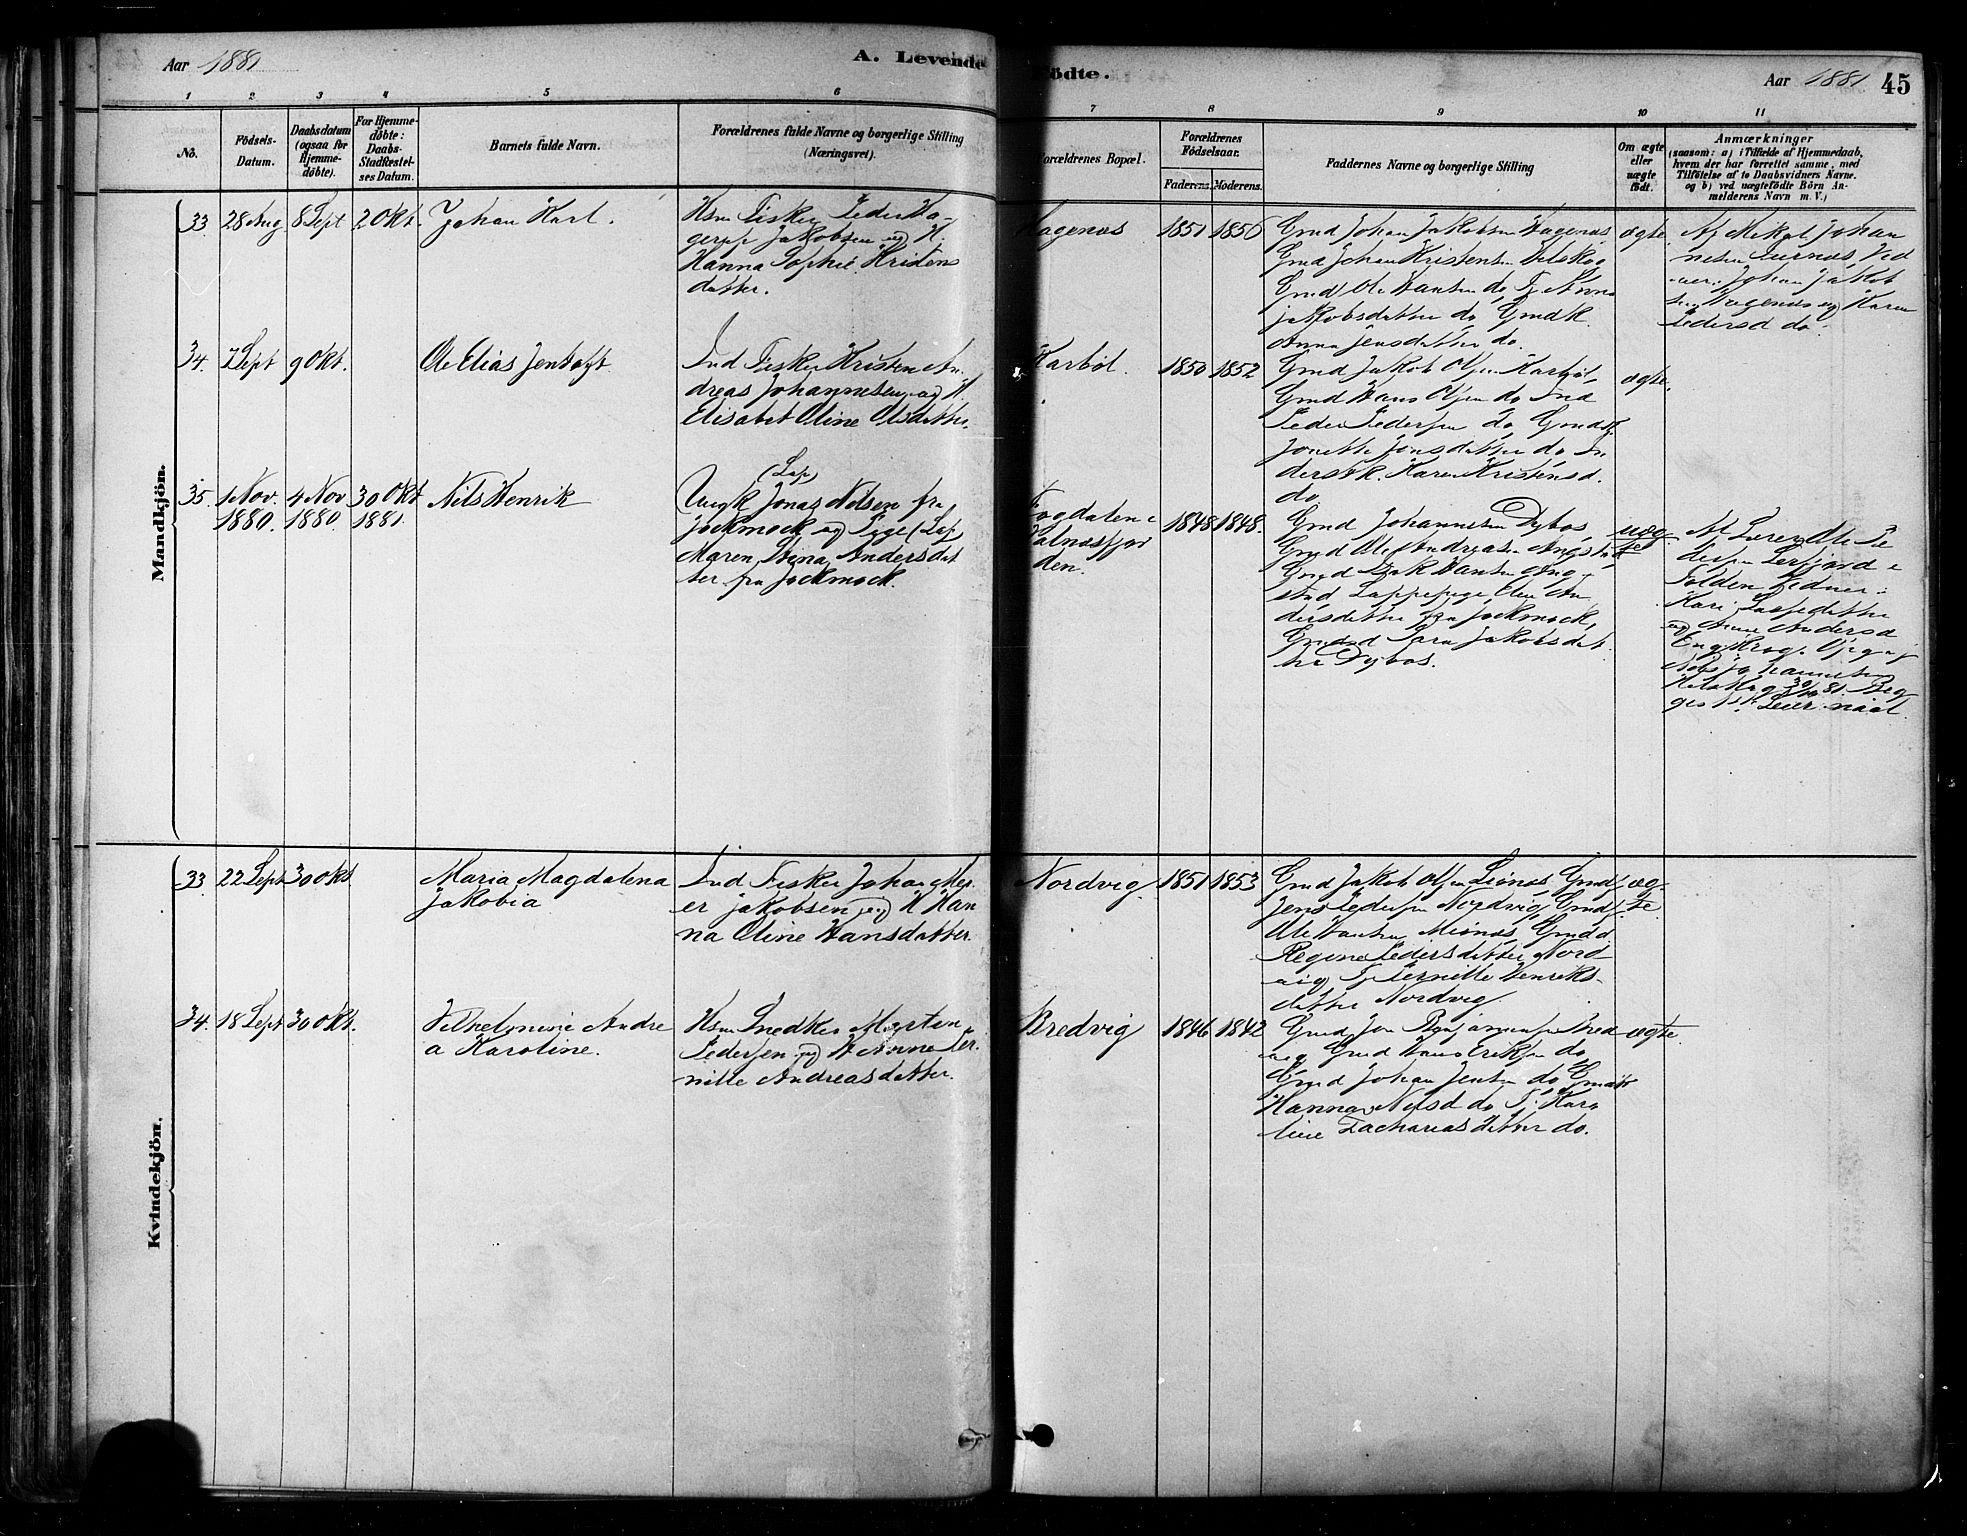 Aar 1881
A. Levende Födte.
Aar 1881 45
1 2 3 4 5 6 7 8 9 10 11
No.
Födsels-
Datum.
Daabsdatum
(ogsaa for
Hjemme-
döbte).
For Hjemme-
döbte:
Daabs-
Stadfæstel-
ses Datum.
Barnets fulde Navn.
Forældrenes fulde Navne og borgerlige Stilling
(Næringsvei).
Forældrenes Bopæl.
Forældrenes
Födselsaar.
Faderens. Moderens.
Faddernes Navne og borgerlige Stilling
Om ægte
eller
uægte
födt.
Anmærkninger
(saasom: a) i Tilfælde af Hjemmedaab,
hvem der har forrettet samme, med
Tilföielse af to Daabsvidners Navne.
og b) ved uægtefödte Börn An-
melderens Navn m. V.)
Mandkjön.
33 28 Aug 8 Sept 2 Okt. Johan Karl.
Hsm Fisker Peder Ha-
gerup Jakobsen og H.
Hanna Sophie Kristens
datter.
Hagenæs 1851 1856
Gmd Johan Jakobsen Hagenæs
Gmd Johan Kristensen
Gmd Ole Hansen do
Jakobsdatter do Gmdk
Anna Jensdatter do.
ægte.
Af Mikal Johan
Johan Jakob
Hagenæs og Karen
Pedersd do.
34. 7 Sept 9 Okt. Ole Elias Jentoft
Ind Fisker Kristen An-
dreas Johannesen og H.
Elisabet Oline Olsdatter.
Karbøl. 1850 1852
Gmd Jakob Olsen Karbøl
Gmd Hans Olsen do Ind
Peder Pedersen do Gmdsk
Jonette Jonsdatter do In
derstk. Karen Kristensd.
do
ægte.
35. 1 Nov. 4 Nov 30 Okt Nils Henrik
1880. 1880. 1881.
(Lap)
Ungk Jonas Nilsen fra
Jockmock og Pige (Lap)
Maren Stina Andersdat
ter fra Jockmock.
den. 1848 1848.
Gmd Johannesen Dybos,
Gmd Ole Andreasen Angstad
Gmd Hansen Ang-
stad Lappepige An
dersdatter fra Jockmock,
Gmdsd Sara Jakobsdat
ter Dybos.
uæg
te.
Af Ole Pe
dersen
Kari
og Andersd
30/10 81.
Kvindekjön.
33 22 Sept 30 Okt Maria Magdalena
Jakobia
Ind Fisker Johan Mey-
er Jakobsen og H Han
na Oline Hansdatter.
Nordvig. 1851 1853
Gmd Jakob Olsen Gmd
Jens Pedersen Nordvig, Gmd
Ole Hansen Gmdd
Regine Pedersdatter Nord
vig Pernille Henriks-
datter Nordvig.
æg-
te.
34. 18 Sept 30 Okt. Vilhelmine Andre
a Karoline.
Hsm Snedker Morten
Pedersen og H Anne Per-
nille Andreasdatter.
Bredvig 1846 1842
Gmd Jon Benjaminsen Bred
vig Gmd Hans Eriksen do
Gmd Johan Jensen do
Hanna Nilsd do Karo
line Zachariasdatter do.
ægte.